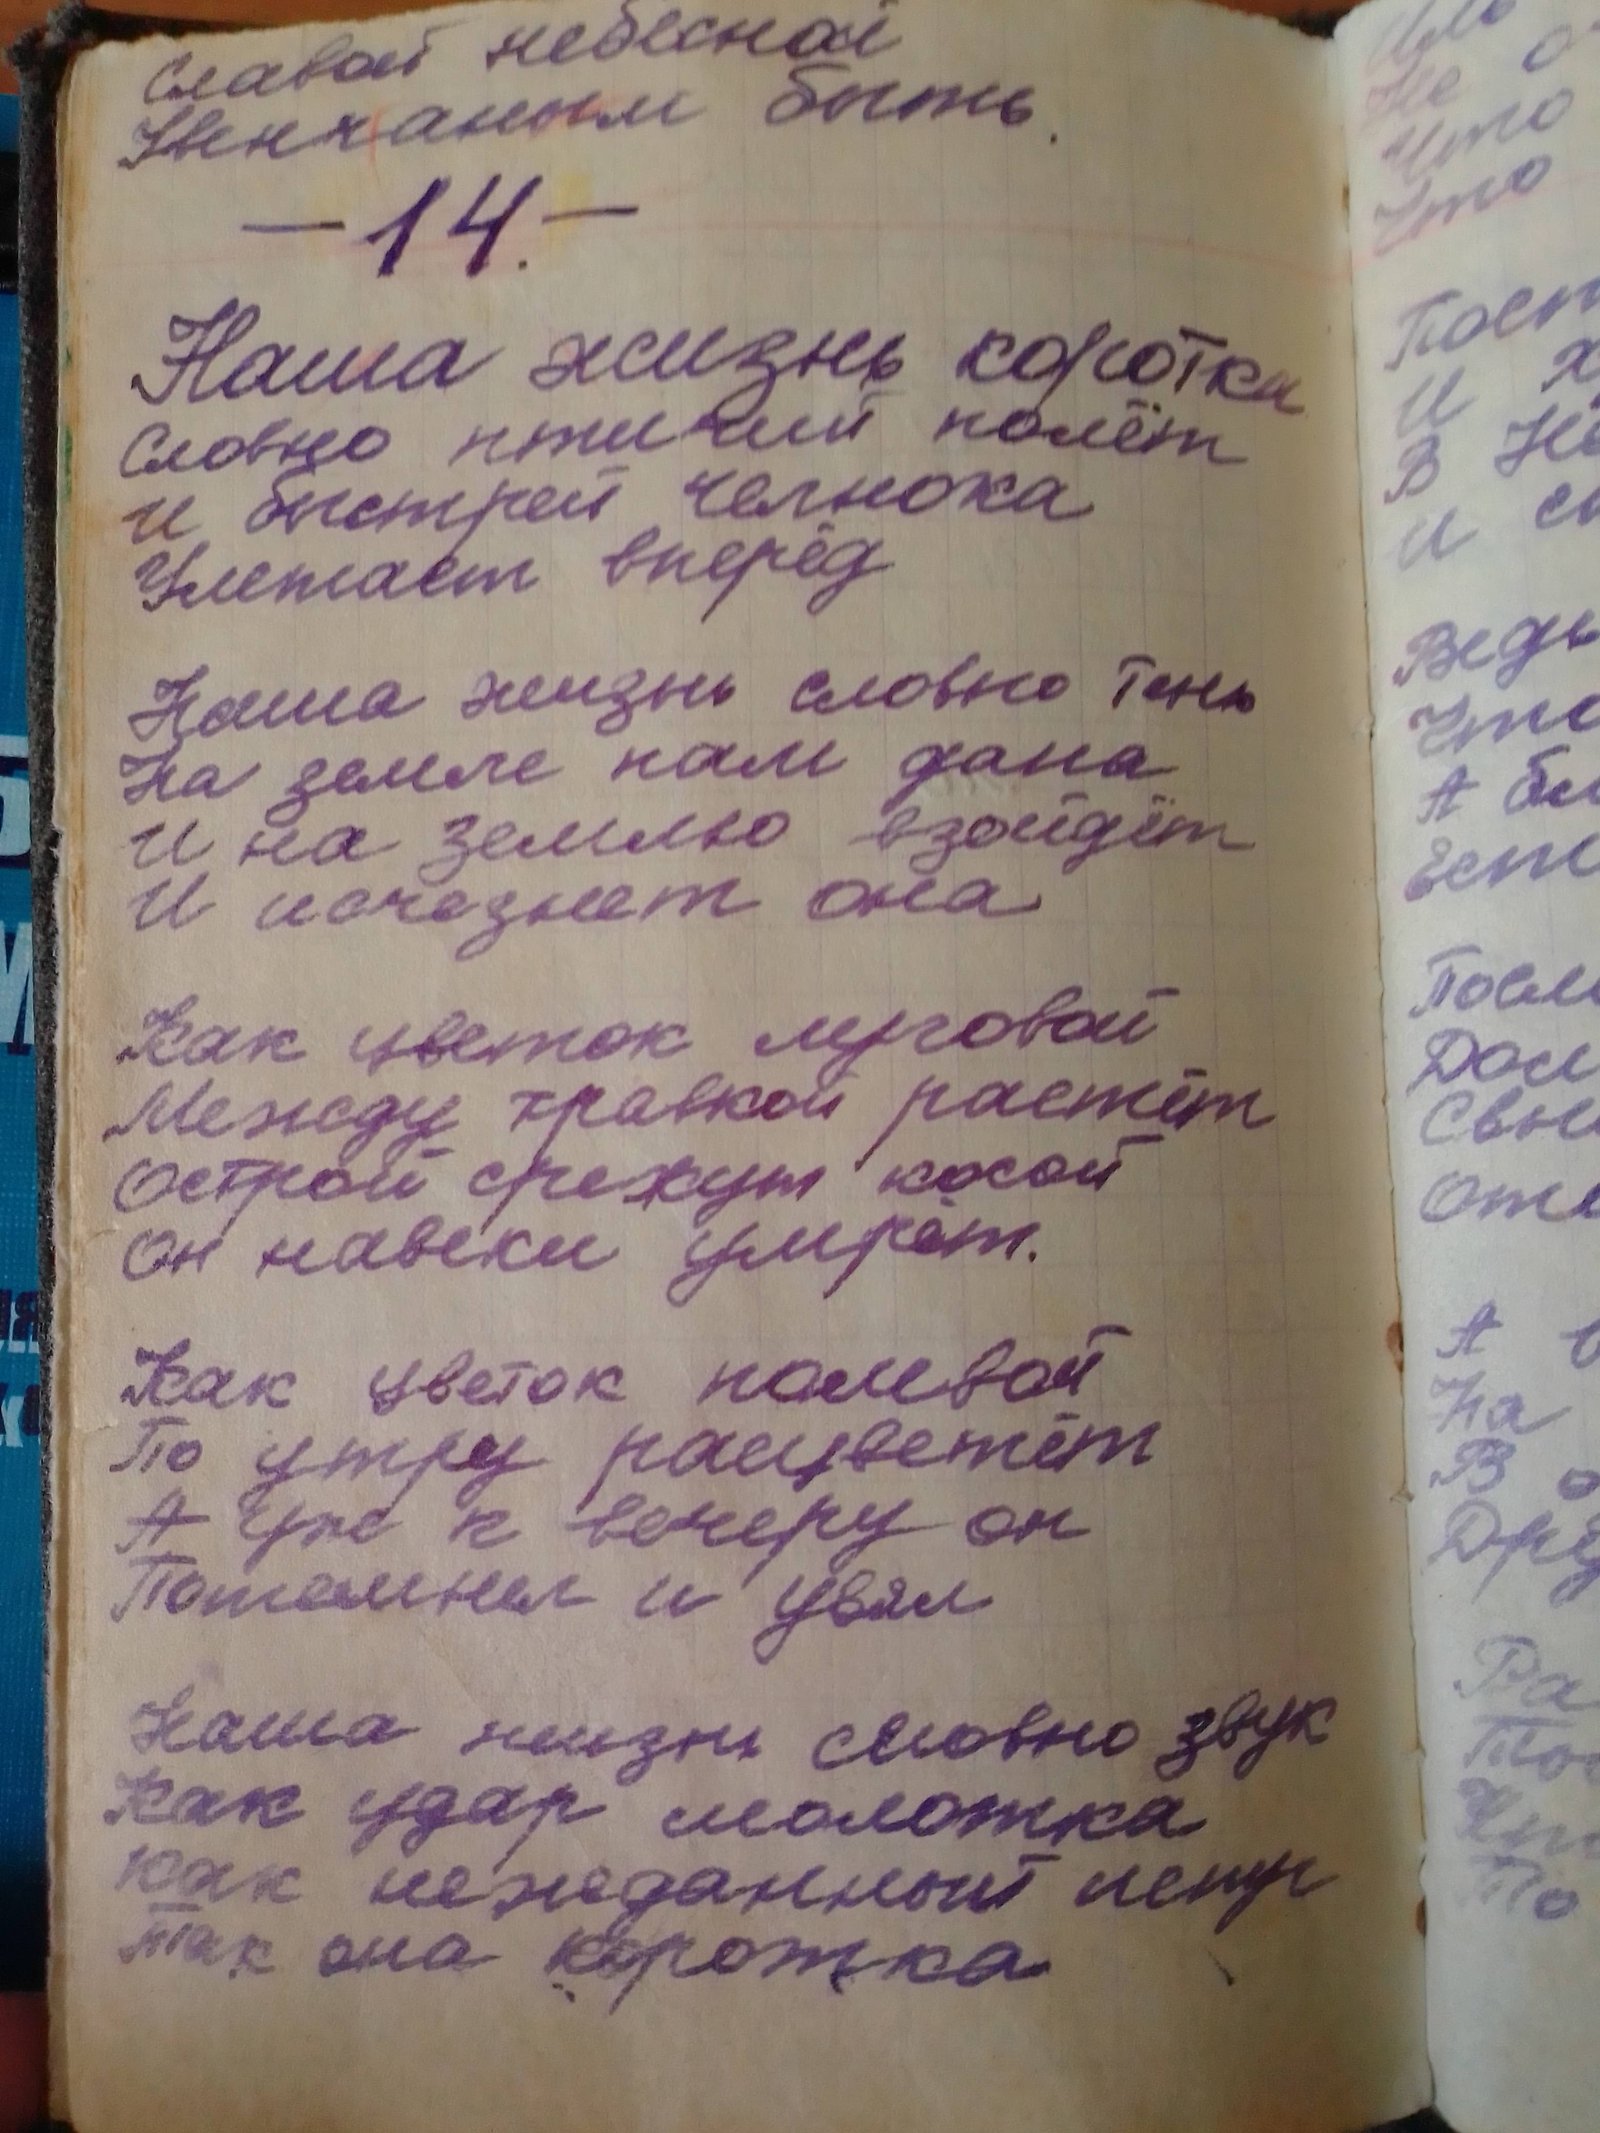 Славой небесной
Увенчаным быть.
-14.-
Наша жизнь коротка
Словно птичий полёт
И быстрей челнока
Улетает вперёд
Наша жизнь словно тень
На земле нам дана
И на землю взойдёт
И исчезнет она
Как цветок луговой
Между травкой растёт
Острой срежут косой
Он навеки умрёт.
Как цветок полевой
По утру расцветёт
А уж к вечеру он
Потемнел и увял
Наша жизнь словно звук
Как удар молотка
Как нежданный испуг
Так она коротка
Не
Что
Что
И
В
И
Ведь
Что
А
Дом
А
На
В
То